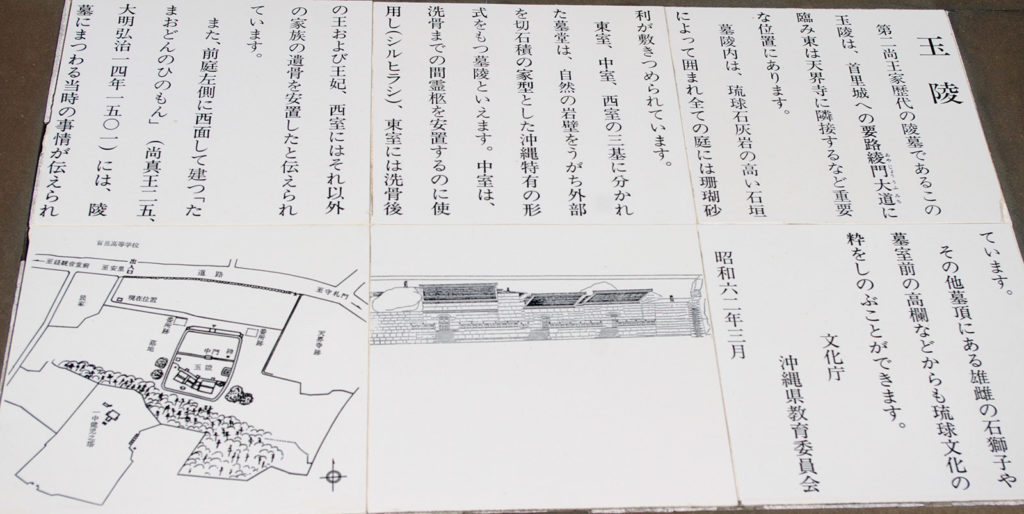 玉陵
第二尚王家歴代の陵墓であるこの
玉陵は、首里城への要路綾門大道に
臨み東は天界寺に隣接するなど重要
な位置にあります。
墓陵内は、琉球石灰岩の高い石垣
によって囲まれ全ての庭には珊瑚砂
利が敷きつめられています。
東室、中室、西室の三基に分かれ
た墓堂は、自然の岩壁をうがち外部
を切石積の家型とした沖縄特有の形
式をもつ墓陵といえます。中室は、
洗骨までの間霊柩を安置するのに使
用し(シルヒラシ)、東室には洗骨後
の王および王妃、西室にはそれ以外
の家族の遺骨を安置したと伝えられ
ています。
また、前庭左側に西面して建つ「た
まおどんのひのもん」(尚真王二五、
大明弘治一四年―一五〇一)には、陵
墓にまつわる当時の事情が伝えられ
ています。
その他墓頂にある雄雌の石獅子や
墓室前の高欄などからも琉球文化の
粋をしのぶことができます。
文化庁
沖縄県教育委員会
昭和六二年三月
首里高等学校
至観音堂前
至安里
出入口
道路
至守礼門
現在位置
民家
天界寺跡
墓地
中門
碑
玉陵
一中健児之塔